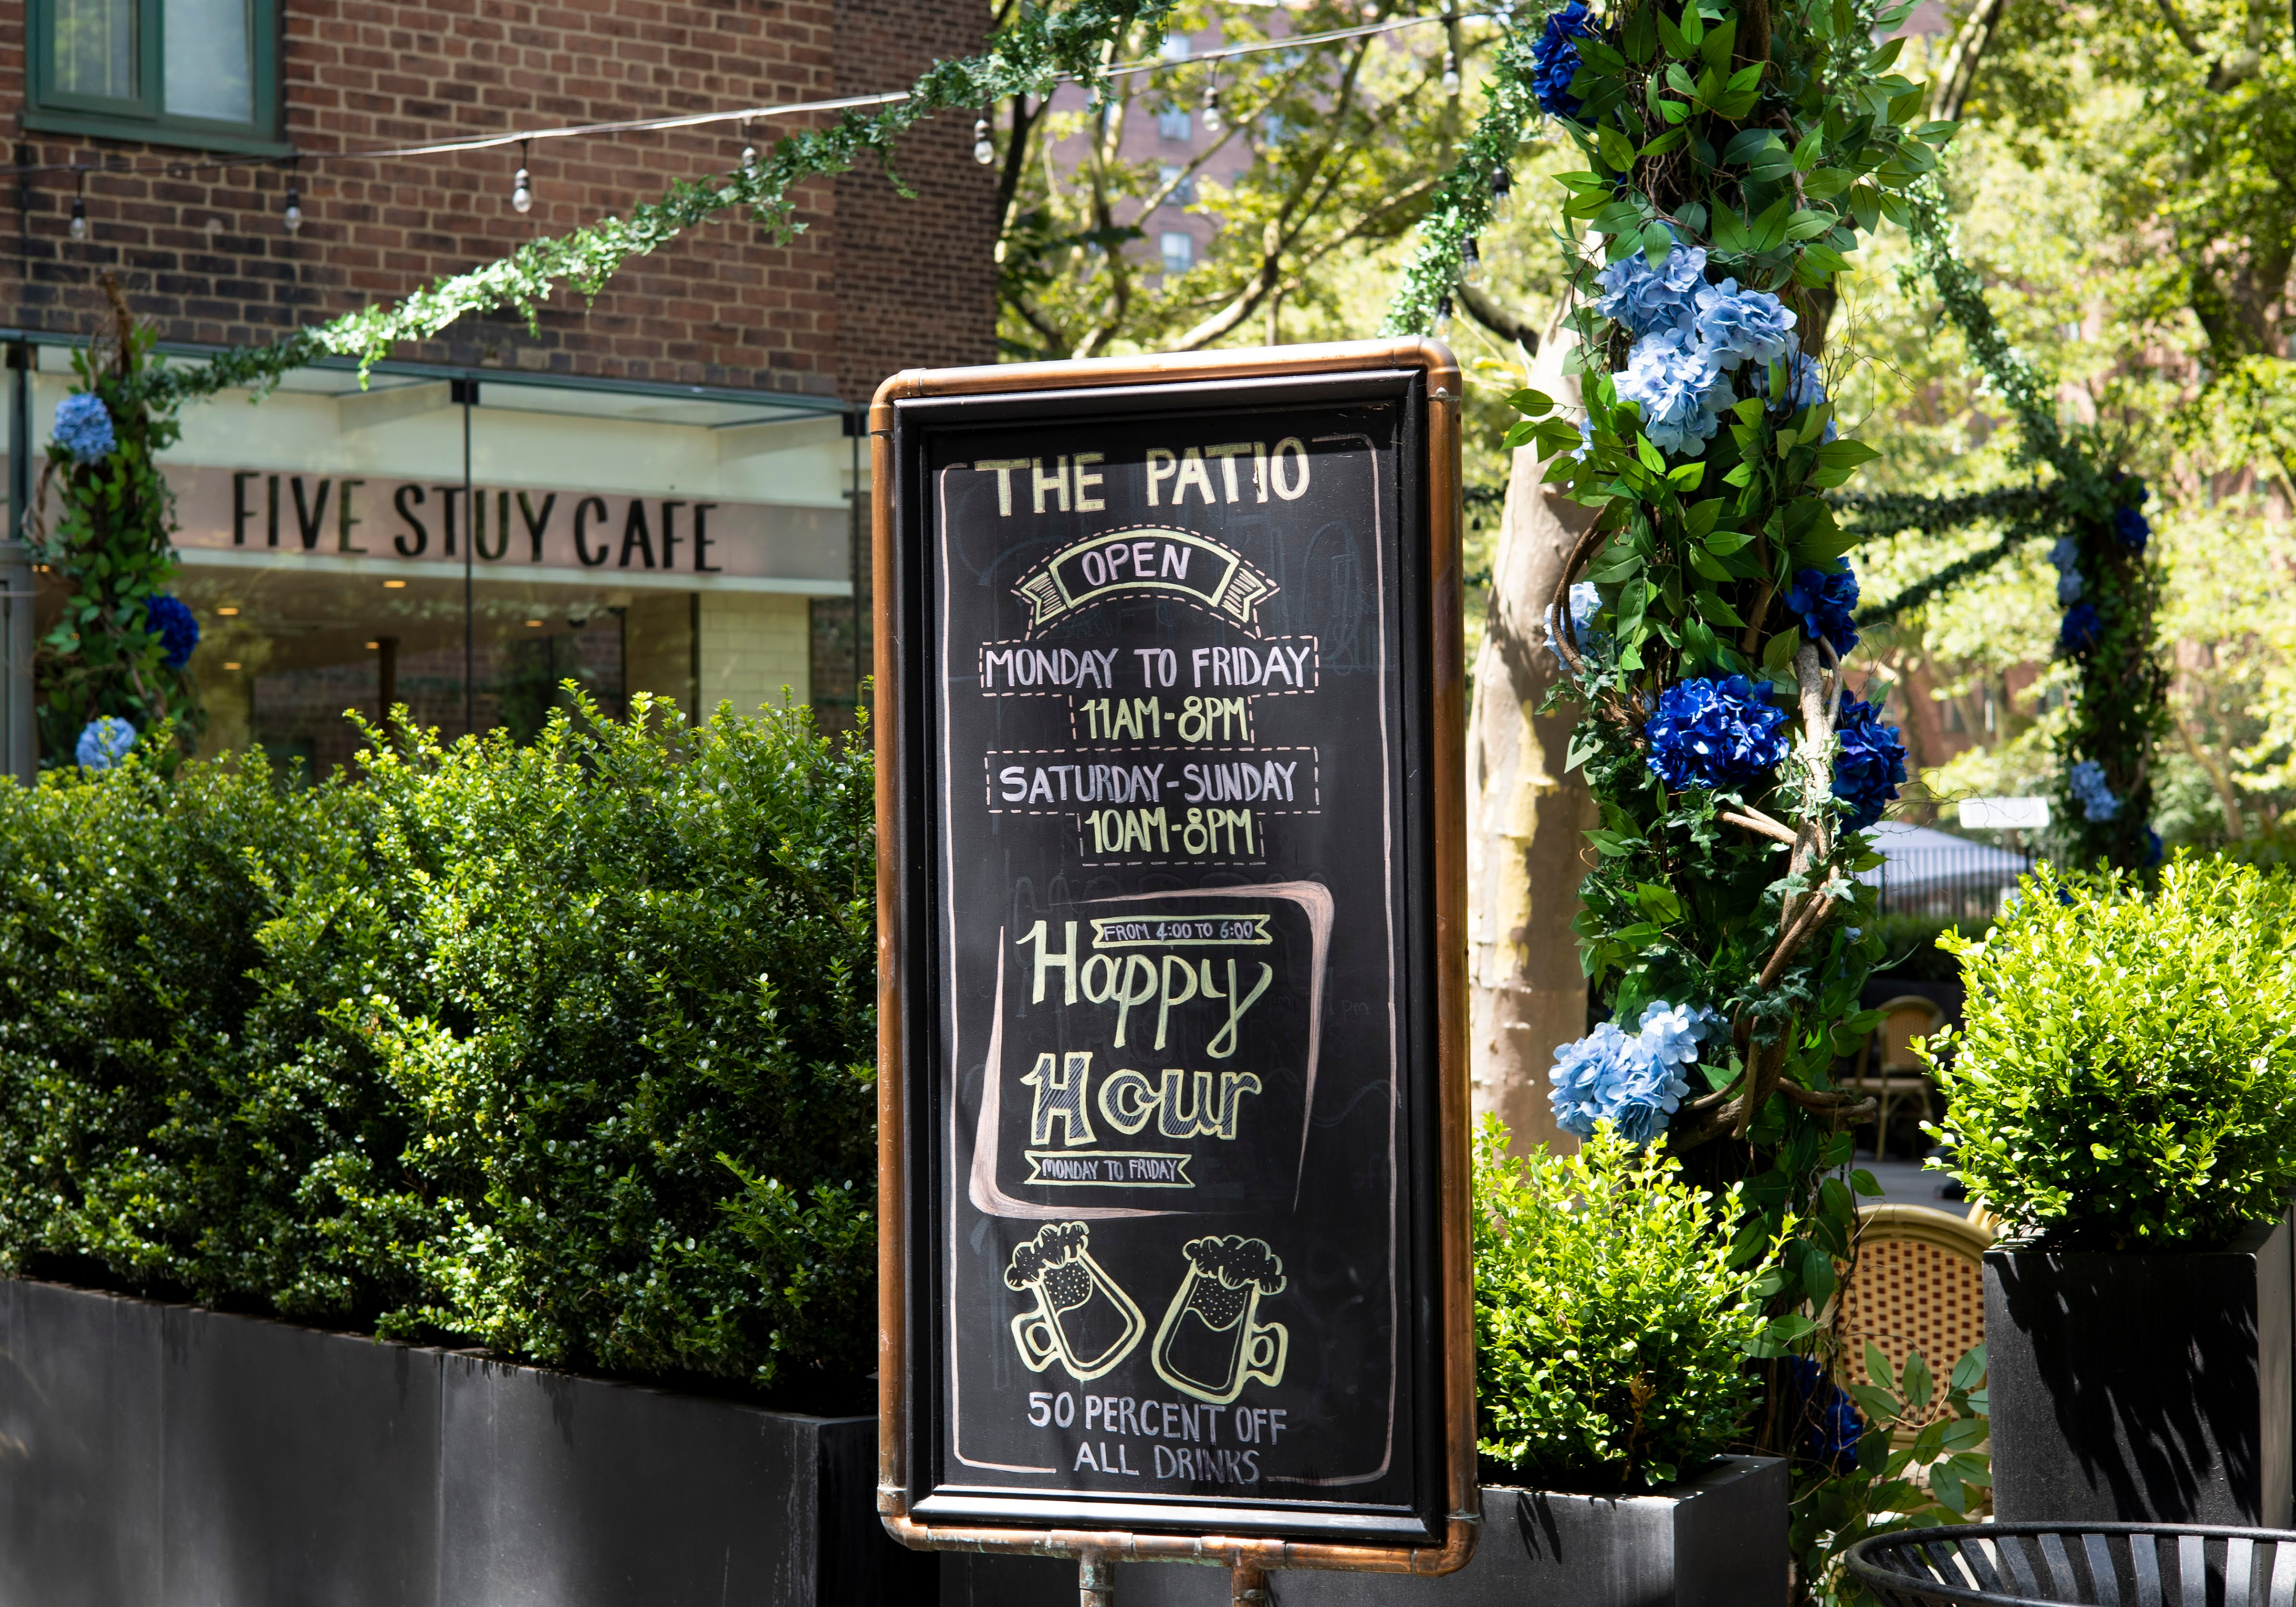 FIVE STUY CAFE
THE PATIO
OPEN
MONDAY TO FRIDAY
11AM-8PM
SATURDAY-SUNDAY
10AM-8PM
FROM 4:00 TO 6:00
Happy
Hour
MONDAY TO FRIDAY
50 PERCENT OFF
ALL DRINKS